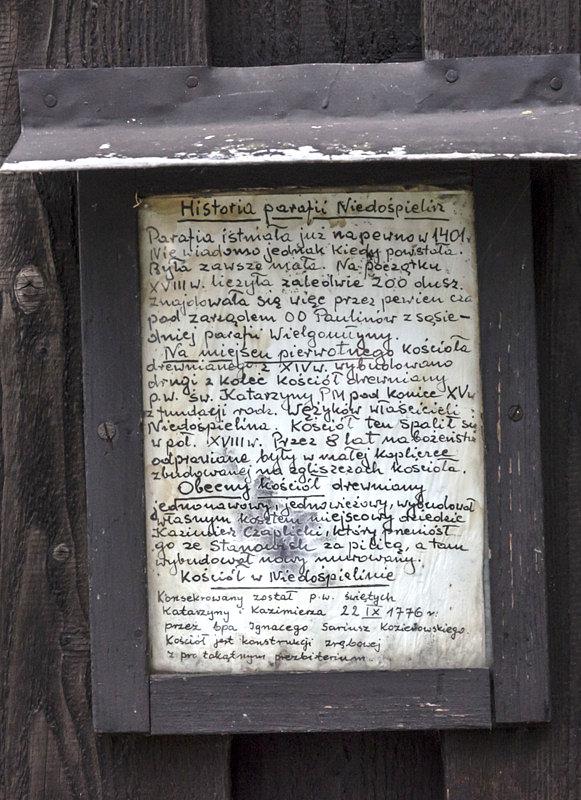 Historia parafii Niedośpielin
Parafia istniała już na pewno w 1401 r.
Nie wiadomo jednak kiedy powstała.
Była zawsze mała. Na początku
XVIII w. liczyła zaledwie 200 dusz.
Znajdowała się więc przez pewien cza
pod zarządem OO Paulinów z sąsie-
dniej parafii Wielgomłyny.
Na miejscu pierwotnego kościoła
drewnianego z XIV w. wybudowano
drugi z kolei kościół drewniany
p.w. św. Katarzyny PM pod koniec XV w
z fundacji rodz. Wężyków właścicieli
Niedośpielina. Kościół ten spalił się
w poł. XVIII w. Przez 8 lat nabożeństw
odprawiane były w małej kapliczce
zbudowanej na zgliszczach kościoła.
Obecny kościół drewniany
jednonawowy, jednowieżowy, wybudował
własnym kosztem miejscowy dziedzic
Kazimierz Czaplicki, który przeniósł
go ze Stanowisk za pilicą, a tam
wybudował nowy murowany.
Kościół w Niedośpielinie
Konsekrowany został p.w. świętych
Katarzyny i Kazimierza 22 IX 1776 r.
przez bpa Ignacego Sariusz Kozierowskiego
Kościół jest konstrukcji zrębowej
z prostokątnym prezbiterium.